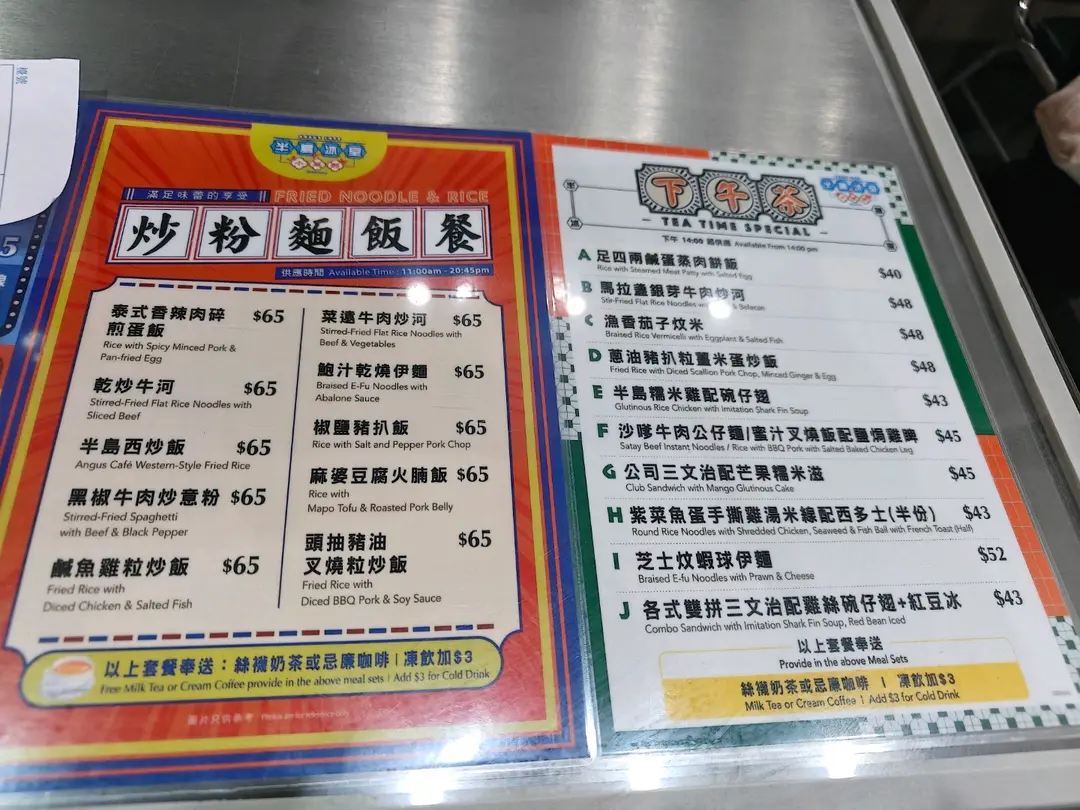 樓號
5
半島冰室
滿足味蕾的享受
FRIED NOODLE & RICE
炒粉麵飯餐
供應時間 Available Time : 11:00am - 20:45pm
泰式香辣肉碎 $65
煎蛋飯
Rice with Spicy Minced Pork &
Pan-fried Egg
乾炒牛河 $65
Stirred-Fried Flat Rice Noodles with
Sliced Beef
半島西炒飯 $65
Angus Café Western-Style Fried Rice
黑椒牛肉炒意粉 $65
Stirred-Fried Spaghetti
with Beef & Black Pepper
鹹魚雞粒炒飯 $65
Fried Rice with
Diced Chicken & Salted Fish
菜遠牛肉炒河 $65
Stirred-Fried Flat Rice Noodles with
Beef & Vegetables
鮑汁乾燒伊麵 $65
Braised E-Fu Noodles with
Abalone Sauce
椒鹽豬扒飯 $65
Rice with Salt and Pepper Pork Chop
麻婆豆腐火腩飯 $65
Rice with
Mapo Tofu & Roasted Pork Belly
頭抽豬油 $65
叉燒粒炒飯
Fried Rice with
Diced BBQ Pork & Soy Sauce
以上套餐奉送：絲襪奶茶或忌廉咖啡 | 凍飲加$3
Free Milk Tea or Cream Coffee provide in the above meal sets | Add $3 for Cold Drink
圖片只供參考 Photos are for reference only
下午茶
TEA TIME SPECIAL
下午 14:00 起供應 Available From 14:00 pm
A 足四兩鹹蛋蒸肉餅飯 $40
Rice with Steamed Meat Patty with Salted Egg
B 馬拉盞銀芽牛肉炒河 $48
Stir-Fried Flat Rice Noodles
C 漁香茄子炆米 $48
Braised Rice Vermicelli with Eggplant & Salted Fish
D 蔥油豬扒粒薑米蛋炒飯 $48
Fried Rice with Diced Scallion Pork Chop, Minced Ginger & Egg
E 半島糯米雞配碗仔翅 $43
Glutinous Rice Chicken with Imitation Shark Fin Soup
F 沙嗲牛肉公仔麵/蜜汁叉燒飯配鹽焗雞髀 $45
Satay Beef Instant Noodles / Rice with BBQ Pork with Salted Baked Chicken Leg
G 公司三文治配芒果糯米滋 $45
Club Sandwich with Mango Glutinous Cake
H 紫菜魚蛋手撕雞湯米線配西多士(半份) $43
Round Rice Noodles with Shredded Chicken, Seaweed & Fish Ball with French Toast (Half)
I 芝士炆蝦球伊麵 $52
Braised E-fu Noodles with Prawn & Cheese
J 各式雙拼三文治配雞絲碗仔翅+紅豆冰 $43
Combo Sandwich with Imitation Shark Fin Soup, Red Bean Iced
以上套餐奉送
Provide in the above Meal Sets
絲襪奶茶或忌廉咖啡 | 凍飲加$3
Milk Tea or Cream Coffee | Add $3 for Cold Drink